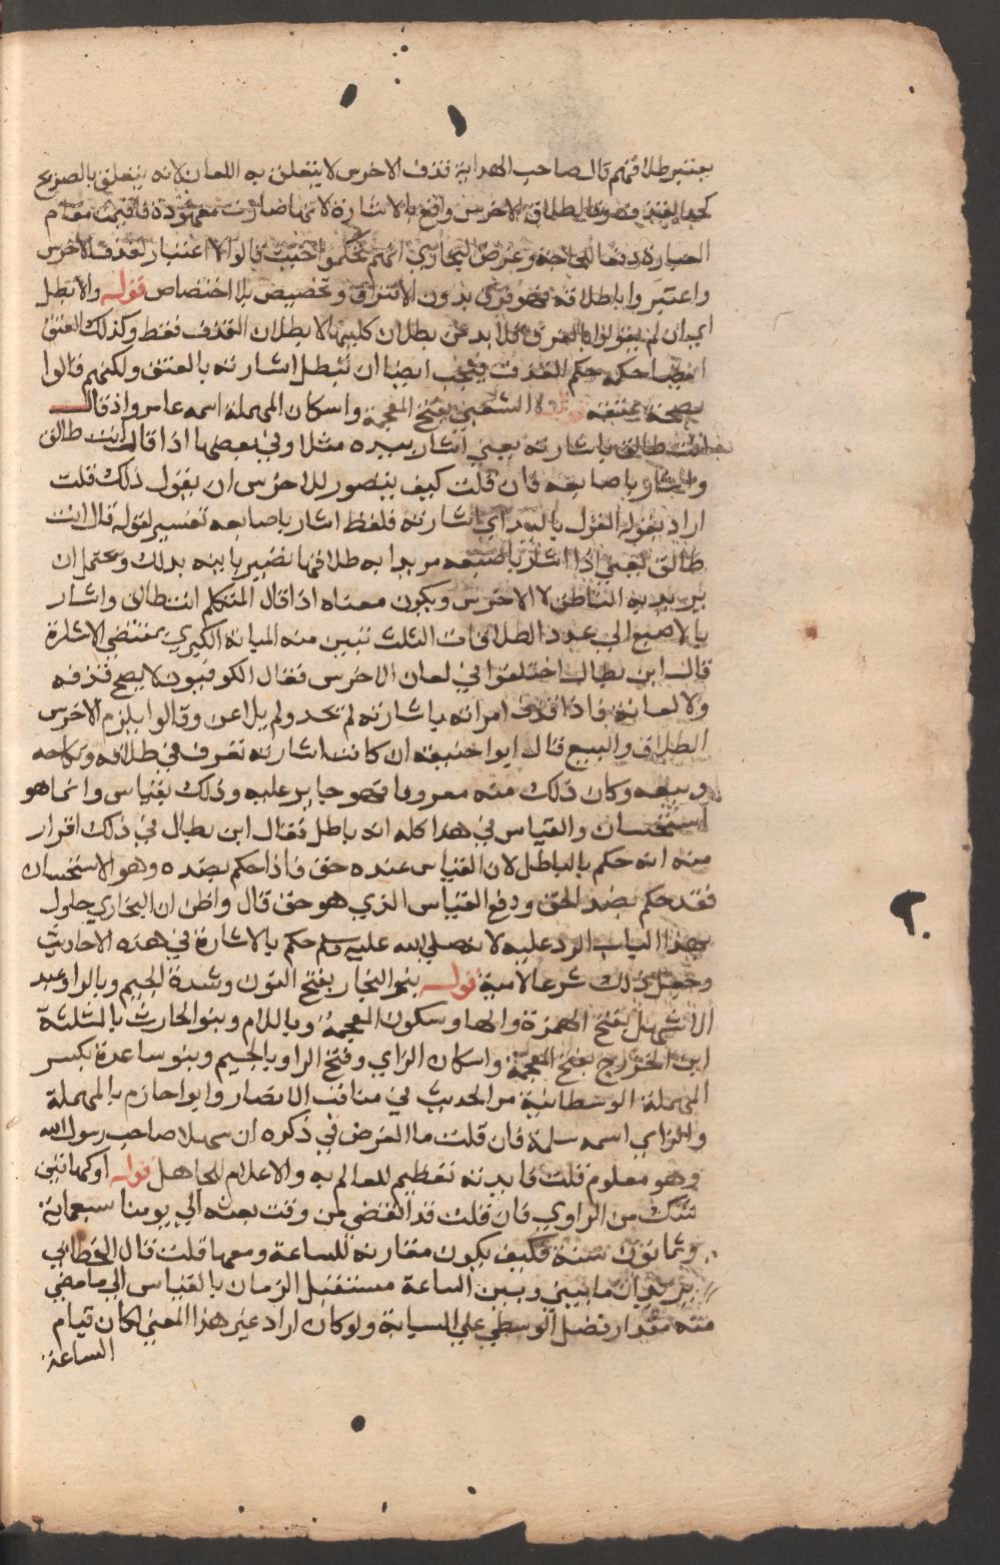 يعتبر طلاقهم قال صاحب الهداية قذف الاخرس لا يتعلق به اللعان لانه يتعلق بالصريح
كحد القذف وطلاق الاخرس واقع بالاشارة لانها صارت معهودة فاقيمت مقام
العبارة دفعا للحاجة وغرض البخاري انهم تحكموا حيث قالوا لا اعتبار لقذف الاخرس
واعتبروا طلاقه فهو فرق بدون الافتراق وتخصيص بلا اختصاص قوله والا بطل
اي ان لم يقولوا بالفرق فلا بد من بطلان كليهما لا بطلان القذف فقط وكذلك العتق
ايضا حكمه حكم القذف فيجب ايضا ان تبطل اشارته بالعتق ولكنهم قالوا
بصحة عتقه قوله الشعبي بفتح المعجمة واسكان المهملة اسمه عامر واذ قال
انت طالق باشارته يعني اشار بيده مثلا وفي بعضها اذا قال انت طالق
واشار باصابعه فان قلت كيف يتصور للاخرس ان يقول ذلك قلت
اراد بقوله القول باليد اي اشارته فلفظ اشار باصابعه تفسير لقوله قال انت
طالق يعني اذا اشار باصبعه مريدا به طلاقها تصير باينه بذلك ويحتمل ان
يريد به الناطق لا الاخرس ويكون معناه اذا قال المتكلم انت طالق واشار
بالاصبع الى عدد الطلاقات الثلث تبين منه البيانة الكبرى بمقتضى الاشارة
قال ابن بطال اختلفوا في لعان الاخرس فقال الكوفيون لا يصح قذفه
ولا لعانه فاذا قذف امراته باشارته لم يحد ولم يلاعن وقالوا يلزم الاخرس
الطلاق والبيع قال ابوا حنيفه ان كانت اشارته تعرف في طلاقه ونكاحه
وبيعه وكان ذلك منه معروفا فهو جايز عليه وذلك بقياس وانما هو
استحسان والقياس في هذا كله انه باطل فقال ابن بطال في ذلك اقرار
منه انه حكم بالباطل لان القياس عنده حق فاذا حكم بضده وهو الاستحسان
فقد حكم بضد الحق ودفع القياس الذي هو حق قال واظن ان البخاري حاول
بهذا الباب الرد عليه لانه صلى الله عليه وسلم حكم بالاشارة في هذه الاحاديث
وجعل ذلك شرعا لامته قوله بنو النجار بفتح النون وشدة الجيم وبالراو عبد
الاشهل بفتح الهمزة والها وسكون المعجمة وباللام وبنو الحارث بالمثلثة
ابن الخزرج بفتح المعجمة واسكان الزاي وفتح الراو بالجيم وبنو ساعدة بكسر
المهملة الوسطانية مر الحديث في مناقب الانصار وابوا حازم بالمهملة
والزاي اسمه سلمة فان قلت ما الغرض في ذكره ان سهلا صاحب رسول الله
وهو معلوم قلت فايدته تعظيم للعالم به والاعلام للجاهل قوله او كهاتين
شك من الراوي فان قلت قد انقضى من وقت بعثه الي يومنا سبعماية
وثمانون سنة فكيف يكون مقارنه للساعة ومعها قلت قال الخطابي
يريد ان ما بيني وبين الساعة مستقبل الزمان بالقياس الى ما مضي
منه مقدار فضل الوسطي علي السبابة ولو كان اراد غير هذا المعني لكان قيام
الساعة